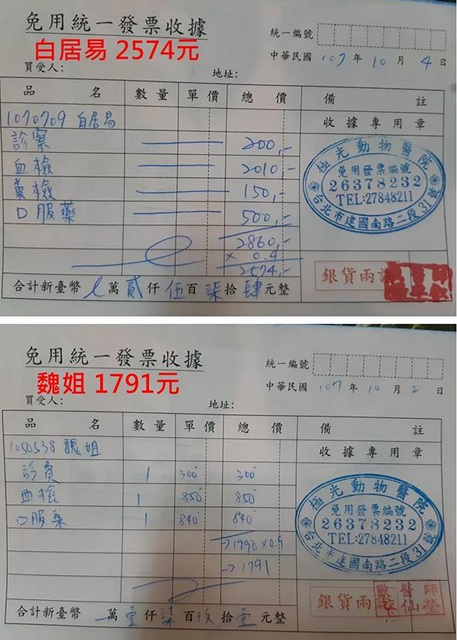 免用統一發票收據
白居易 2574元
統一編號
中華民國 107 年 10 月 4 日
買受人：
地址：
品名 數量 單價 總價 備註
1070709 白居易
收據專用章
診察 200,-
血檢 2010,-
糞檢 150,-
口服藥 500,-
2860,-
x 0.9
2574,-
極光動物醫院
免用發票編號
26378232
TEL:27848211
台北市建國南路二段31號
銀貨兩訖
合計新臺幣 萬貳仟伍百柒拾肆元整
免用統一發票收據
魏姐 1791元
統一編號
中華民國 107 年 10 月 2 日
買受人：
地址：
品名 數量 單價 總價 備註
魏姐
收據專用章
診察 1 300 300
血檢 1 850 850
口服藥 1 840 840
→1990 x 0.9
→1791
極光動物醫院
免用發票編號
26378232
TEL:27848211
台北市建國南路二段31號
銀貨兩訖
合計新臺幣 萬壹仟柒百玖拾壹元整